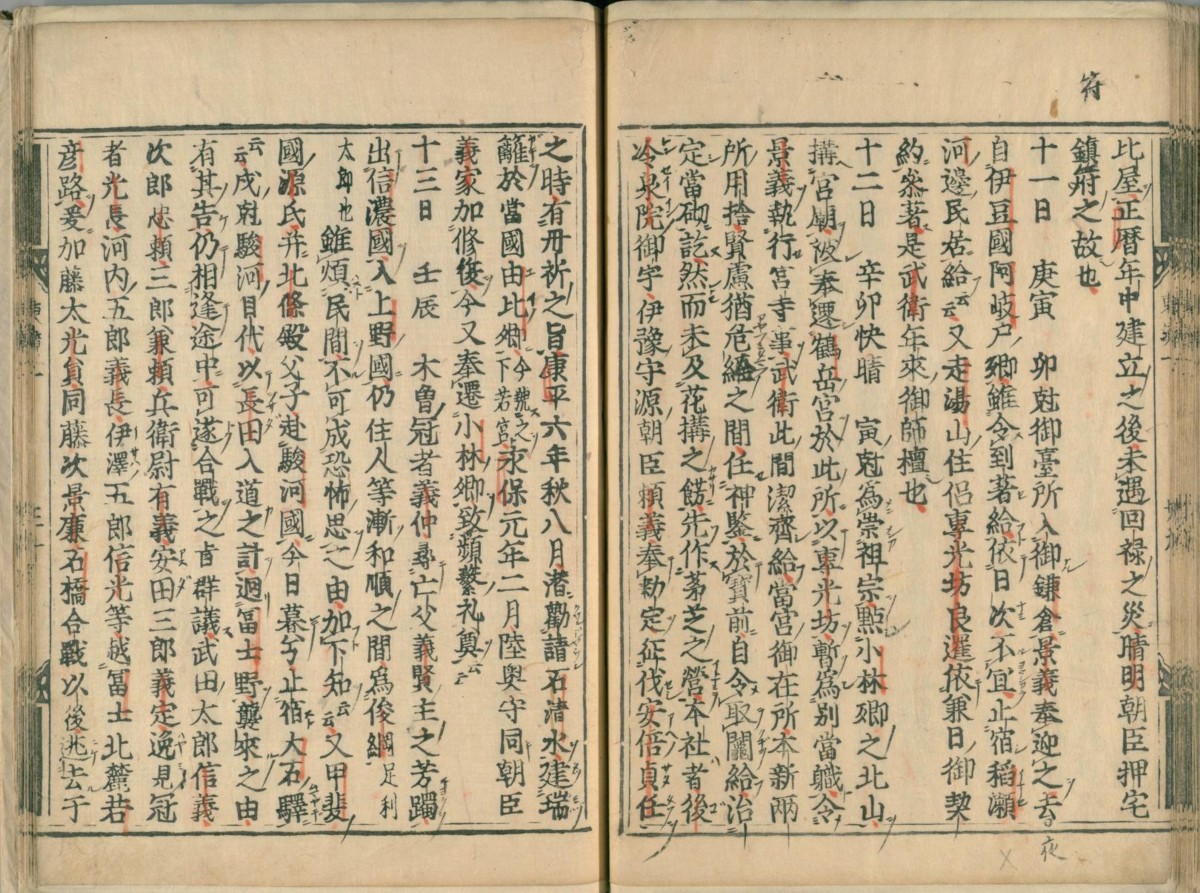 符
比屋正暦年中建立之後未遇回禄之災晴明朝臣押宅
鎮府之故也
十一日 庚寅 卯尅御臺所入御鎌倉景義奉迎之去
夜
自伊豆國阿岐戸郷雖令到著給依日次不宜止宿稲瀬
河邊民居給云又走湯山住侶専光坊良暹依兼日御契
約参著是武衛年來御師檀也
十二日 辛卯快晴 寅尅為崇祖宗點小林郷之北山
搆宮廟被奉遷鶴岳宮於此所以専光坊暫為別當職令
景義執行宮寺事武衛此間潔齊給當宮御在所本新両
所用捨賢慮猶危給之間任神鑒於寳前自令取䦰給治
定當砌訖然而未及花搆之餝先作茅茨之營本社者後
冷泉院御宇伊豫守源朝臣頼義奉勅定征伐安倍貞任
之時有丹祈之旨康平六年秋八月潜勸請石清水建瑞
籬於當國由比郷今號之下若宮永保元年二月陸奥守同朝臣
義家加修復今又奉遷小林郷致蘋蘩礼奠云云
十三日 壬辰 木曽冠者義仲尋亡父義賢主之芳躅
出信濃國入上野國仍住人等漸和順之間為俊綱足利
太郎也雖煩民間不可成恐怖思之由加下知云云又甲斐
國源氏并北條殿父子赴駿河國今日暮兮止宿大石驛
云云戌尅駿河目代以長田入道之計廻冨士野襲來之由
有其告仍相逢途中可遂合戰之旨群議武田太郎信義
次郎忠頼三郎兼頼兵衛尉有義安田三郎義定逸見冠
者光長河内五郎義長伊澤五郎信光等越冨士北麓若
彦路爰加藤太光負同藤次景廉石橋合戰以後逃去于